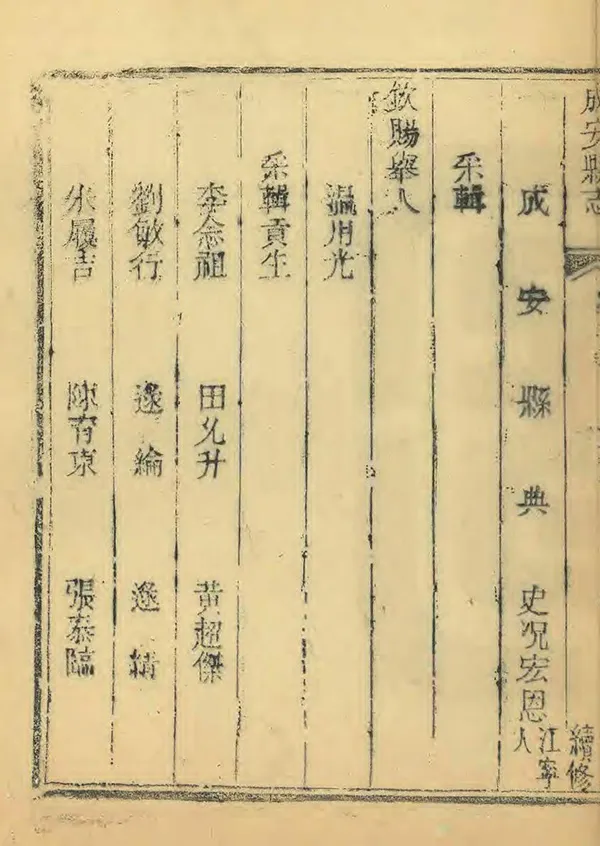 成安縣志
續修
成安縣典史況宏恩江寧人
采輯
欽賜舉人
溫用光
采輯貢生
李念祖 田允升 黃超傑
劉敏行 逯綸 逯綪
朱履吉 陳育東 張泰臨